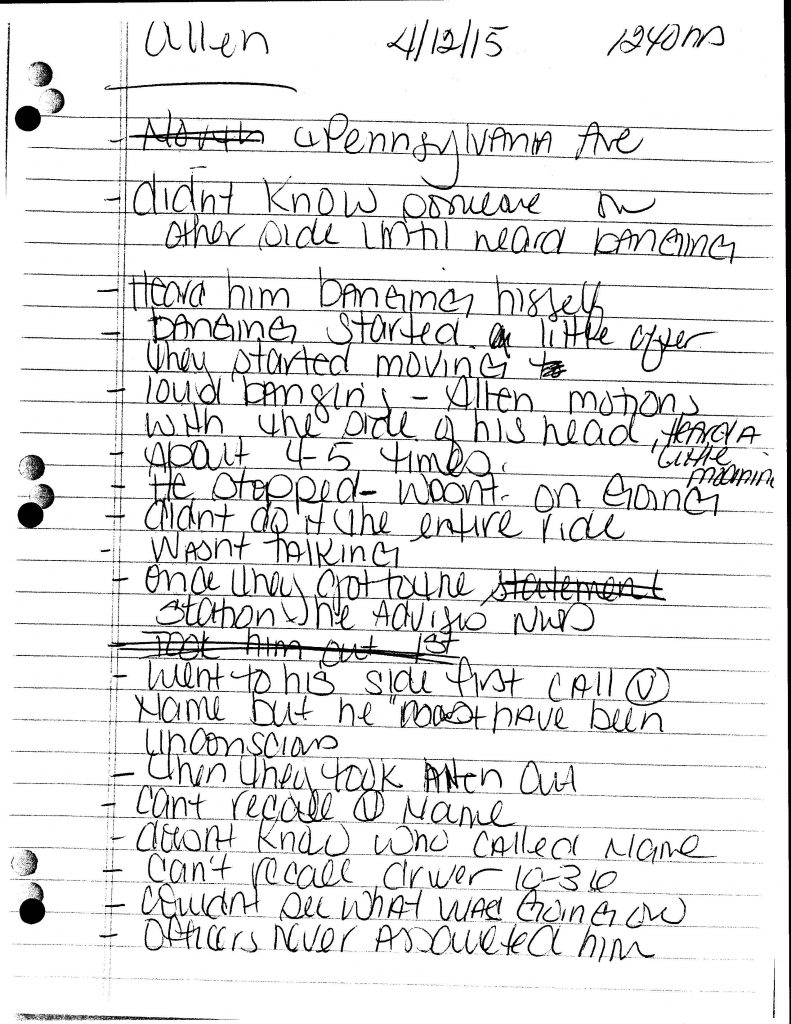 Allen 4/12/15 1240
- North & Pennsylvania Ave
- didnt know someone on
other side until heard banging
- Heard him banging hisself
- banging started a little after
they started moving to
- loud banging - Allen motions
with the side of his head, Heard A
little
moaning
- about 4-5 times.
- He stopped - wasnt on going
- didnt do it the entire ride
- wasnt talking
- once they got to the statement
station the
- took him out 1st
- went to his side first call (V)
Name but he "must have been
unconscious
- then they took Allen out
- cant recall (V) Name
- doesnt know who called Name
- can't recall driver 10-36
- couldnt see what was going on
- officers never assaulted him